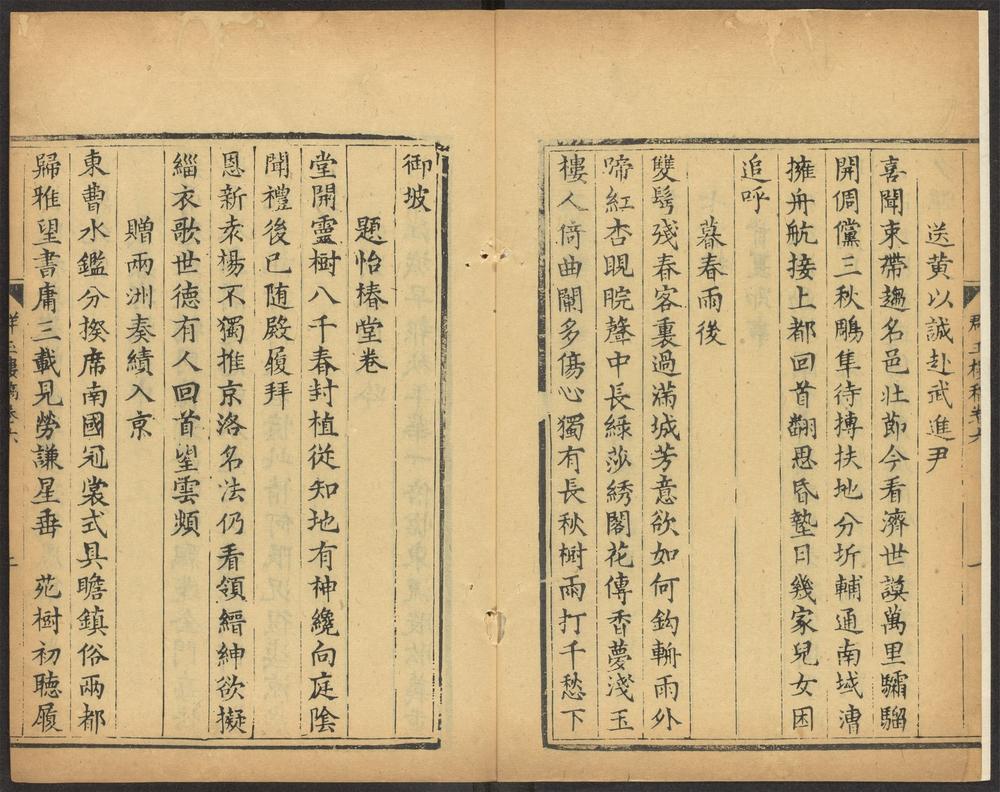 送黄以誠赴武進尹
喜聞束帶趨名邑壯節今看濟世謨萬里驌騮
開倜儻三秋鵰隼待摶扶地分圻輔通南域漕
擁舟航接上都回首翻思昏墊日幾家兒女困
追呼
暮春雨後
雙髩殘春客裏過滿城芳意欲如何鈎輈雨外
啼紅杏睍睆聲中長綠莎綉閣花傳香夢淺玉
樓人倚曲闌多傷心獨有長秋樹雨打千愁下
御坡
題怡椿堂卷
堂開靈樹八千春封植從知地有神纔向庭陰
聞禮後已随殿履拜
恩新來楊不獨推京洛名法仍看領縉紳欲擬
緇衣歌世德有人回首望雲頻
贈兩洲奏績入京
東曹水鑑分揆席南國冠裳式具瞻鎮俗兩都
歸雅望書庸三載見勞謙星垂 苑樹初聽履